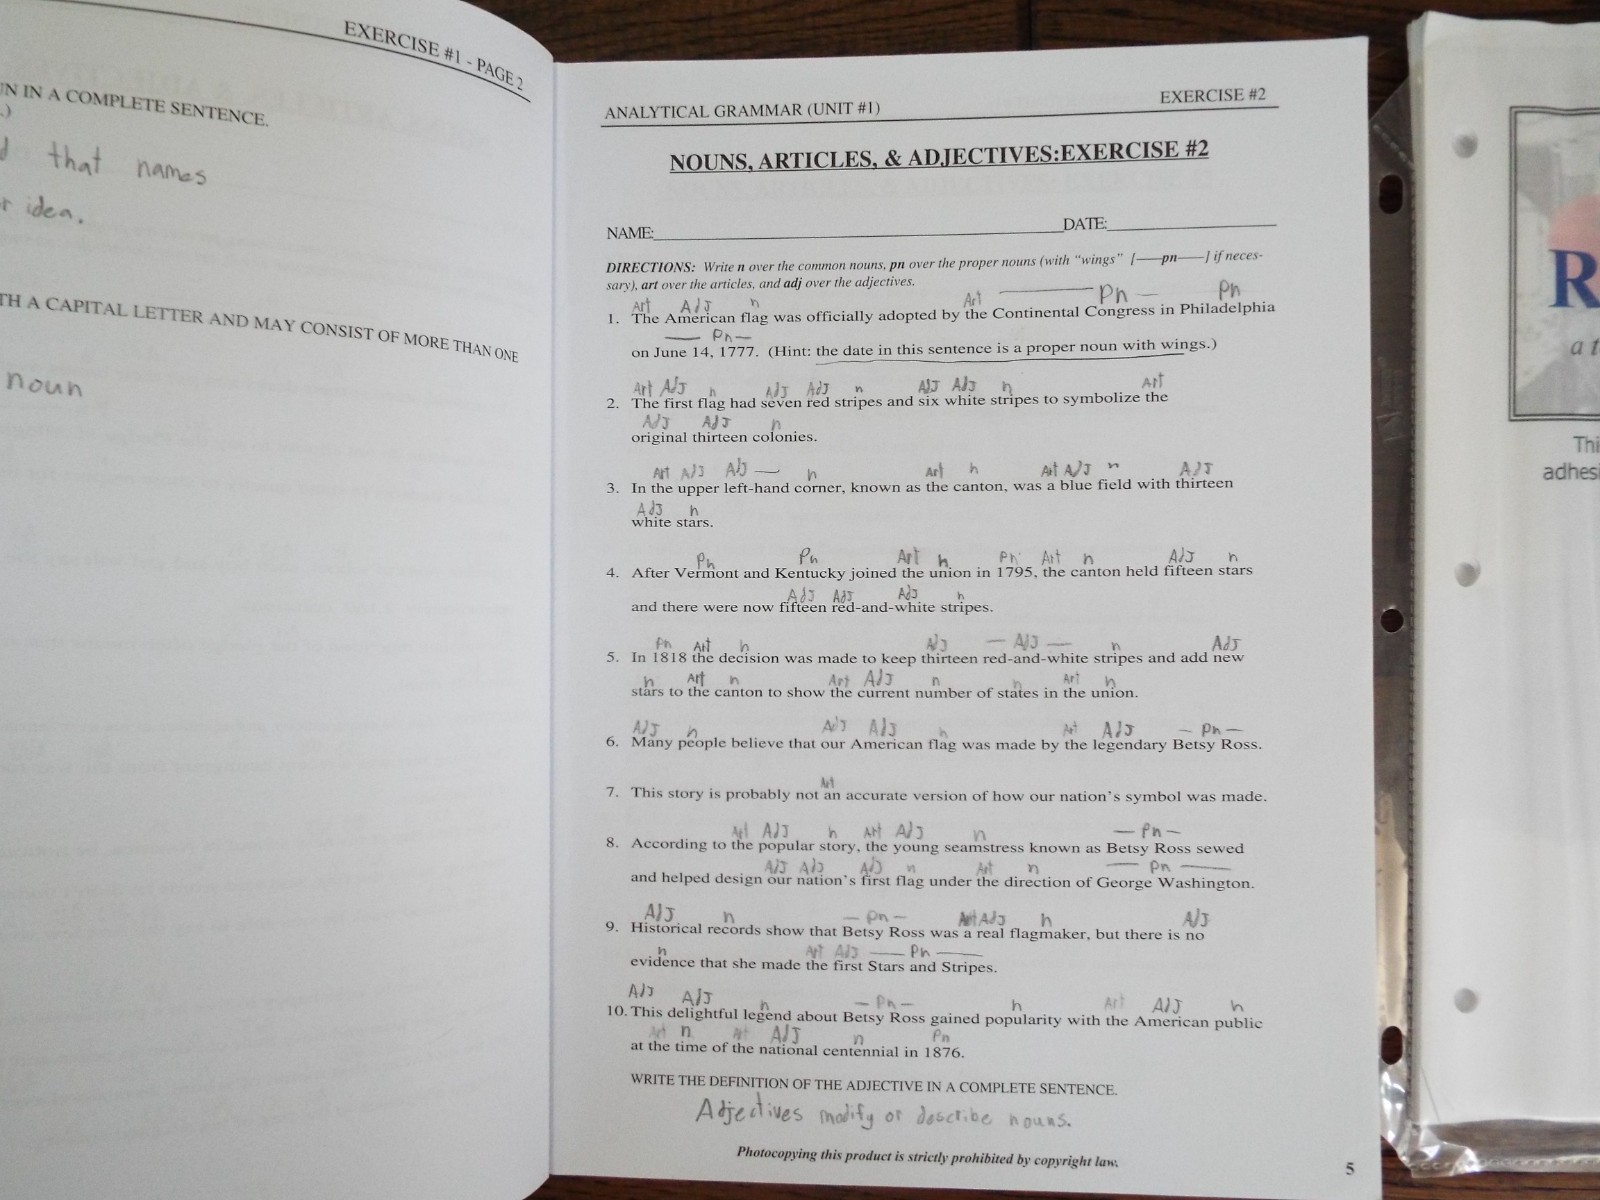 EXERCISE #1 - PAGE 2
UN IN A COMPLETE SENTENCE.
.)
d that names
r idea.
TH A CAPITAL LETTER AND MAY CONSIST OF MORE THAN ONE
noun
ANALYTICAL GRAMMAR (UNIT #1) EXERCISE #2
NOUNS, ARTICLES, & ADJECTIVES:EXERCISE #2
NAME: DATE:
DIRECTIONS: Write n over the common nouns, pn over the proper nouns (with "wings" [—pn—] if neces-
sary), art over the articles, and adj over the adjectives.
Art AdJ n Art — Pn — Pn
1. The American flag was officially adopted by the Continental Congress in Philadelphia
— Pn —
on June 14, 1777. (Hint: the date in this sentence is a proper noun with wings.)
Art AdJ n AdJ AdJ n AdJ AdJ n Art
2. The first flag had seven red stripes and six white stripes to symbolize the
AdJ AdJ n
original thirteen colonies.
Art AdJ AdJ — n Art n Art AdJ n AdJ
3. In the upper left-hand corner, known as the canton, was a blue field with thirteen
AdJ n
white stars.
Pn Pn Art n Pn Art n AdJ n
4. After Vermont and Kentucky joined the union in 1795, the canton held fifteen stars
AdJ AdJ AdJ n
and there were now fifteen red-and-white stripes.
Pn Art n AdJ — AdJ — n AdJ
5. In 1818 the decision was made to keep thirteen red-and-white stripes and add new
n Art n Art AdJ n n Art n
stars to the canton to show the current number of states in the union.
AdJ n AdJ AdJ n Art AdJ — Pn —
6. Many people believe that our American flag was made by the legendary Betsy Ross.
Art
7. This story is probably not an accurate version of how our nation's symbol was made.
Art AdJ n Art AdJ n — Pn —
8. According to the popular story, the young seamstress known as Betsy Ross sewed
AdJ AdJ AdJ n Art n — Pn —
and helped design our nation's first flag under the direction of George Washington.
AdJ n — Pn — Art AdJ n AdJ
9. Historical records show that Betsy Ross was a real flagmaker, but there is no
n Art AdJ — Pn —
evidence that she made the first Stars and Stripes.
AdJ AdJ n — Pn — n Art AdJ n
10. This delightful legend about Betsy Ross gained popularity with the American public
Art n Art AdJ n Pn
at the time of the national centennial in 1876.
WRITE THE DEFINITION OF THE ADJECTIVE IN A COMPLETE SENTENCE.
Adjectives modify or describe nouns.
Photocopying this product is strictly prohibited by copyright law.
5
R
a t
Thi
adhes